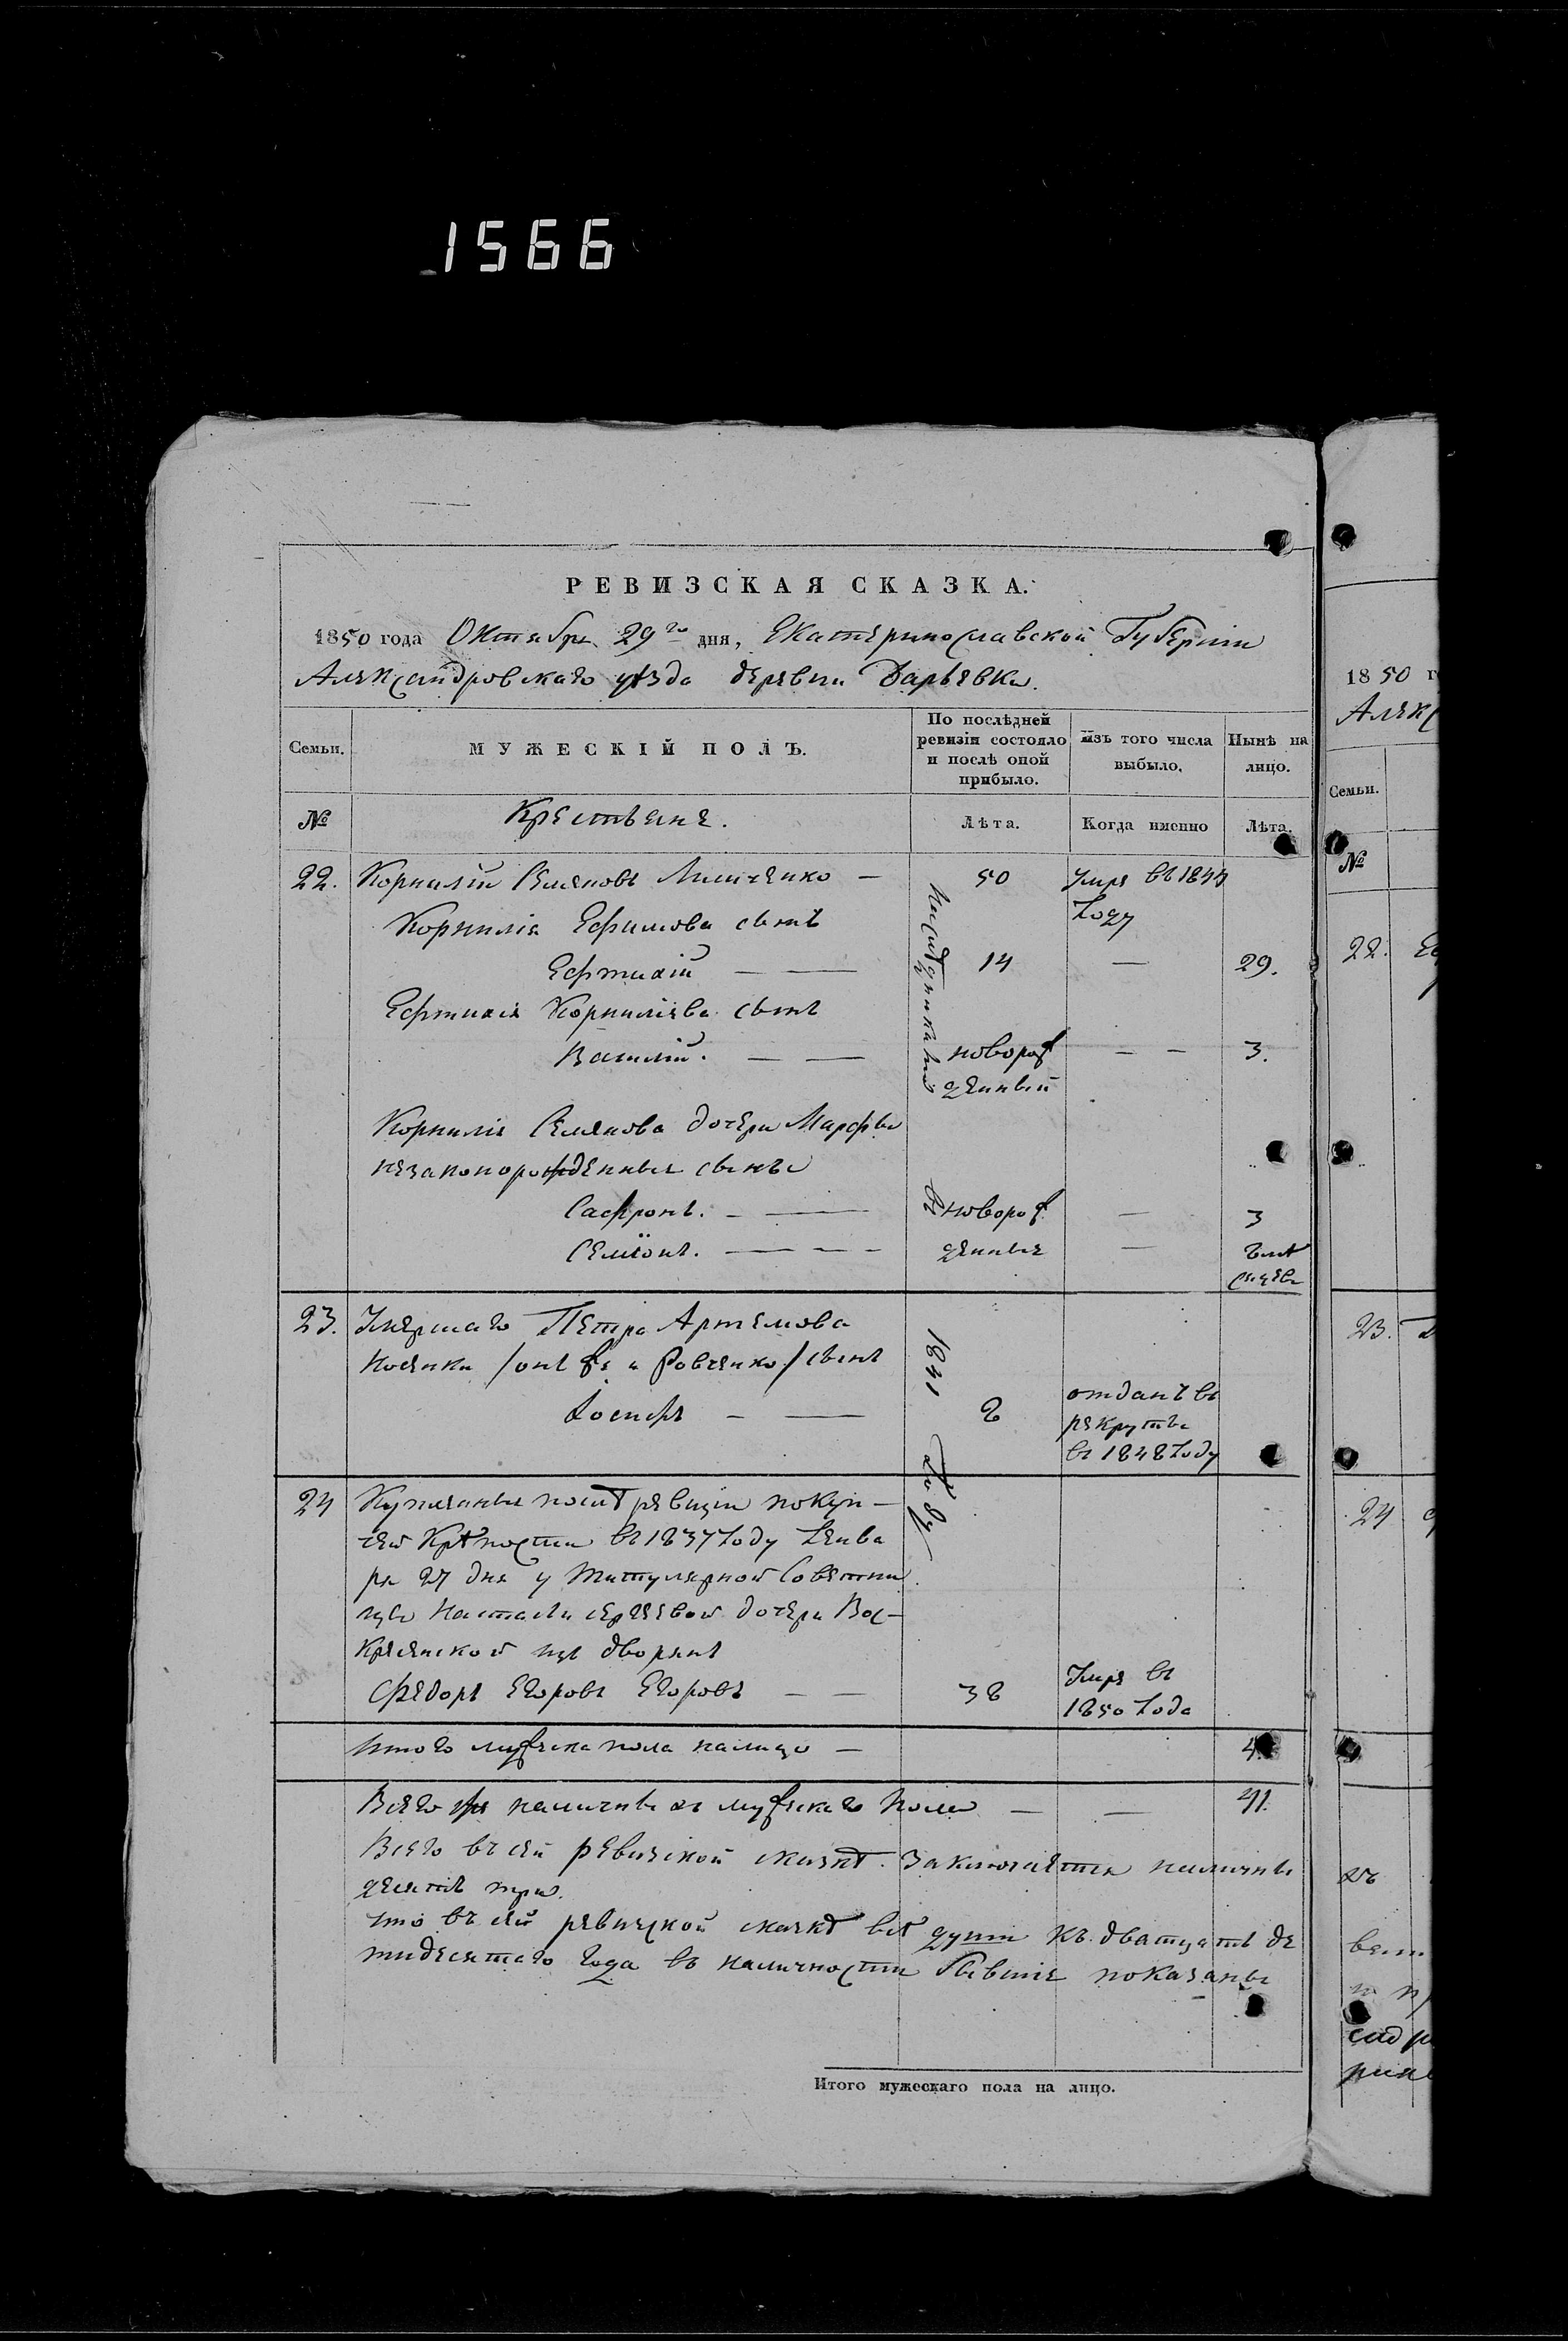 1566
РЕВИЗСКАЯ СКАЗКА.
1850 года Октября 29го дня, Екатеринославской Губерніи
Александровскаго уѣзда деревни Дарьевки.
Семьи.
МУЖЕСКІЙ ПОЛЪ.
По послѣдней ревизіи состояло и послѣ оной прибыло.
Изъ того числа выбыло.
Нынѣ на лицо.
№ Крестьяне. Лѣта. Когда именно Лѣта.
22. Корнилій Семеновъ — 50 умре въ 1844
году
Корнилія Ефимова сынъ
Ефтихій — — 14 — 29.
Ефтихія Корниліева сынъ
Василій. — — новорож — — 3.
денный
Корнилія Семенова дочери Марфы
незаконорожденные сыны
Сафронъ. — — новорож — 3
Семіонъ. — — — денные —
23. Умершаго Петра Артемова
/онъ же и Ровченко/ сынъ
Іосифъ — — 8 отданъ въ
рекруты
въ 1848 году
1841 году
24 Купленные послѣ ревизіи по куп-
чей крѣпости въ 1837 году Генва
ря 27 дня у титулярной совѣтни
цы Настасьи Сергѣевой дочери Вос-
кресенской изъ дворянъ
Федоръ Егоровъ Егоровъ — — 38 умре въ
1850 года
Итого мужеска пола налицо — 4
Всего же наличныхъ мужескаго пола — — 41.
Всего въ сей ревизской сказкѣ заключается наличныхъ
десять три.
что въ сей ревизской сказкѣ всѣ души къ двадцать де
тидесятаго года въ наличности бывшіе показаны
Итого мужескаго пола на лицо.
1850 г
Алекс
Семьи.
№
22.
23.
24